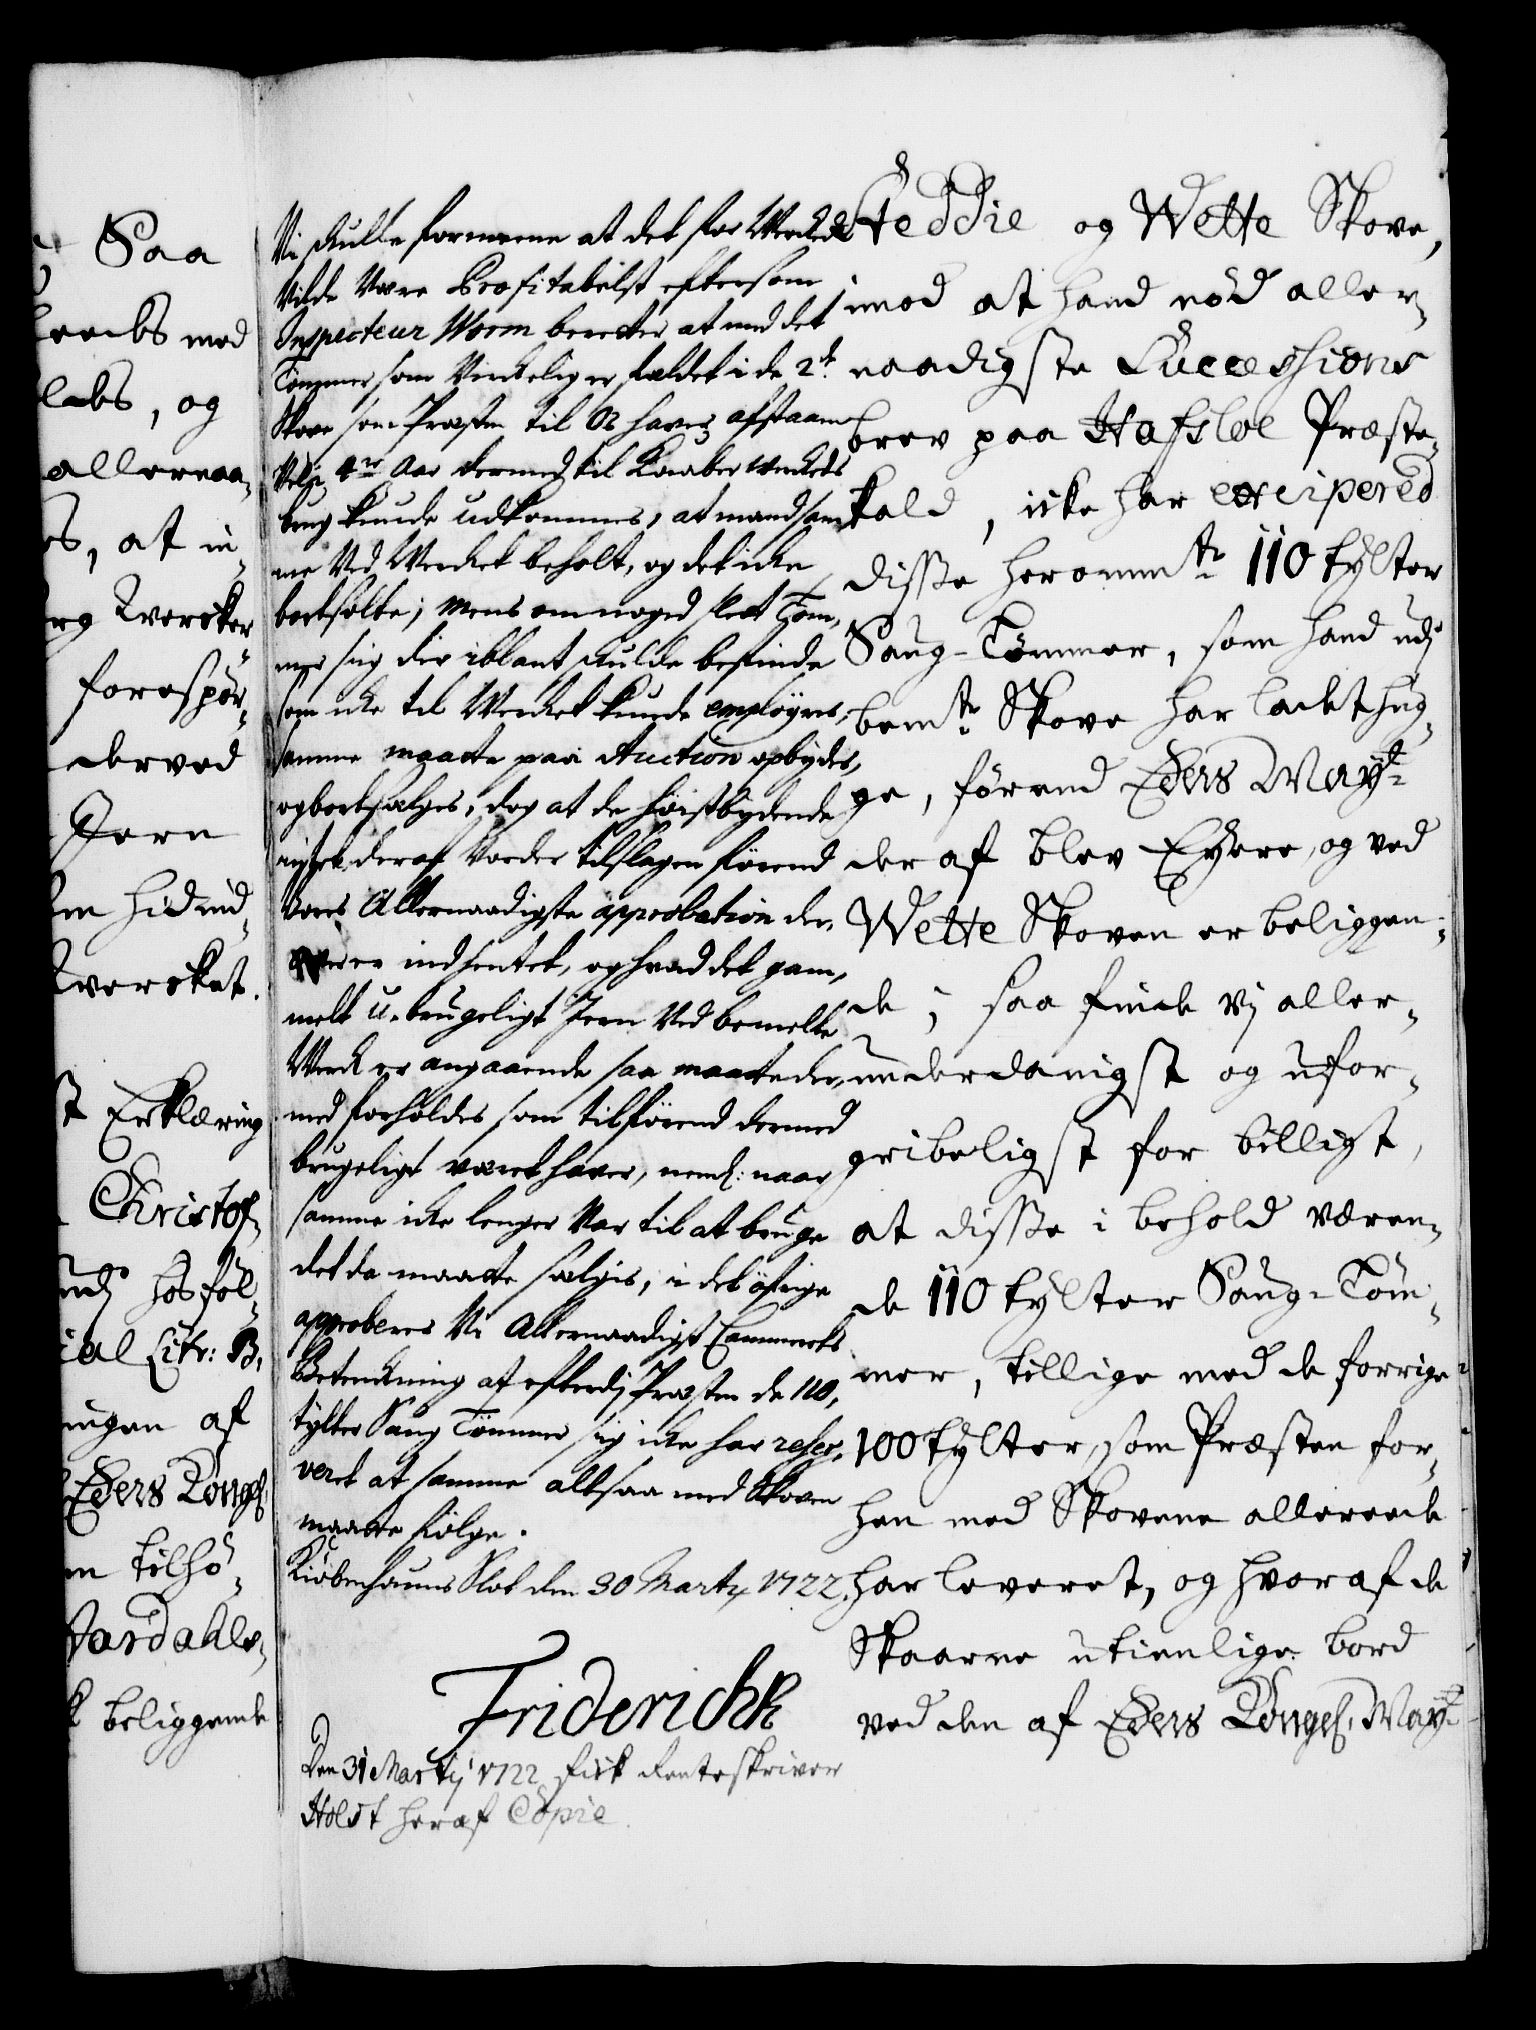 Saa
med
og
allernaa-
at in-
Kversker
forespør-
derved
Jern
hid ind-
Kversket.
Erklæring
Christof-
udj hosføl-
Litr: B.
ingen af
Eders Kongl:
tilhø-
Aardahls-
beliggende
Vi skulle formeene at det for Werket
Vilde være Profitabelst eftersom
Inspecteur Worm beretter at med det
Tømmer som Virkelig er faldet i de 2de
Skove som Præsten til Os haver afstaaen
4re Aar dermed til Kaaber Werkets
brug kunde udkommes, at mand sam-
me Ved Werket beholt, og det icke
bortsolte; Mens om noged slet Tøm-
mer sig der iblant skulde befinde
som icke til Werket kunde employeres,
samme maatte paa Auction opbydes,
og bortsælges, dog at de høistbydende
intet deraf Vorder tilslagen førend
Vores Allernaadigste approbation der-
over er indhentet, og hvad det gam-
melt u-brugeligt Jern Ved bemelte
Werk er angaaende saa maatte der-
med forholdes som tilførend dermed
brugeligt været haver, neml: naar
samme icke lenger Var til at bruge
det da maatte sælges, i det øfrige
approberes Vi Allernaadigst Cammerets
Betenckning at efterdj Præsten de 110,
tylter Saug Tømmer sig icke har reser-
veret at samme altsaa med Skoven
maatte følge.
Kiøbenhauns Slot den 30 Martij 1722.
Friderich R
Den 31 Martij 1722 fick Renteskriver
Holst heraf Copie.
Feddie og Wette Skove,
imod at hand nød aller-
naadigste Successions
brev paa Hafsloe Præste-
kald, icke har excipered
disse heromm.te 110 tylter
Saug-Tømmer, som hand udj
bem.te Skove har ladet hug-
ge, førend Eders May.t
der af blev Eyere, og ved
Wette Skoven er beliggen-
de; saa finde Vj aller-
underdanigst og ufor-
gribeligst for billigt,
at disse i behold væren-
de 110 tylter Saug-Tøm-
mer, tillige med de forrige
100 tylter, som Præsten for-
hen med Skovene allereede
har leveret, og hvoraf de
Skaarne utienlige bord
ved den af Eders Kongl: May.t